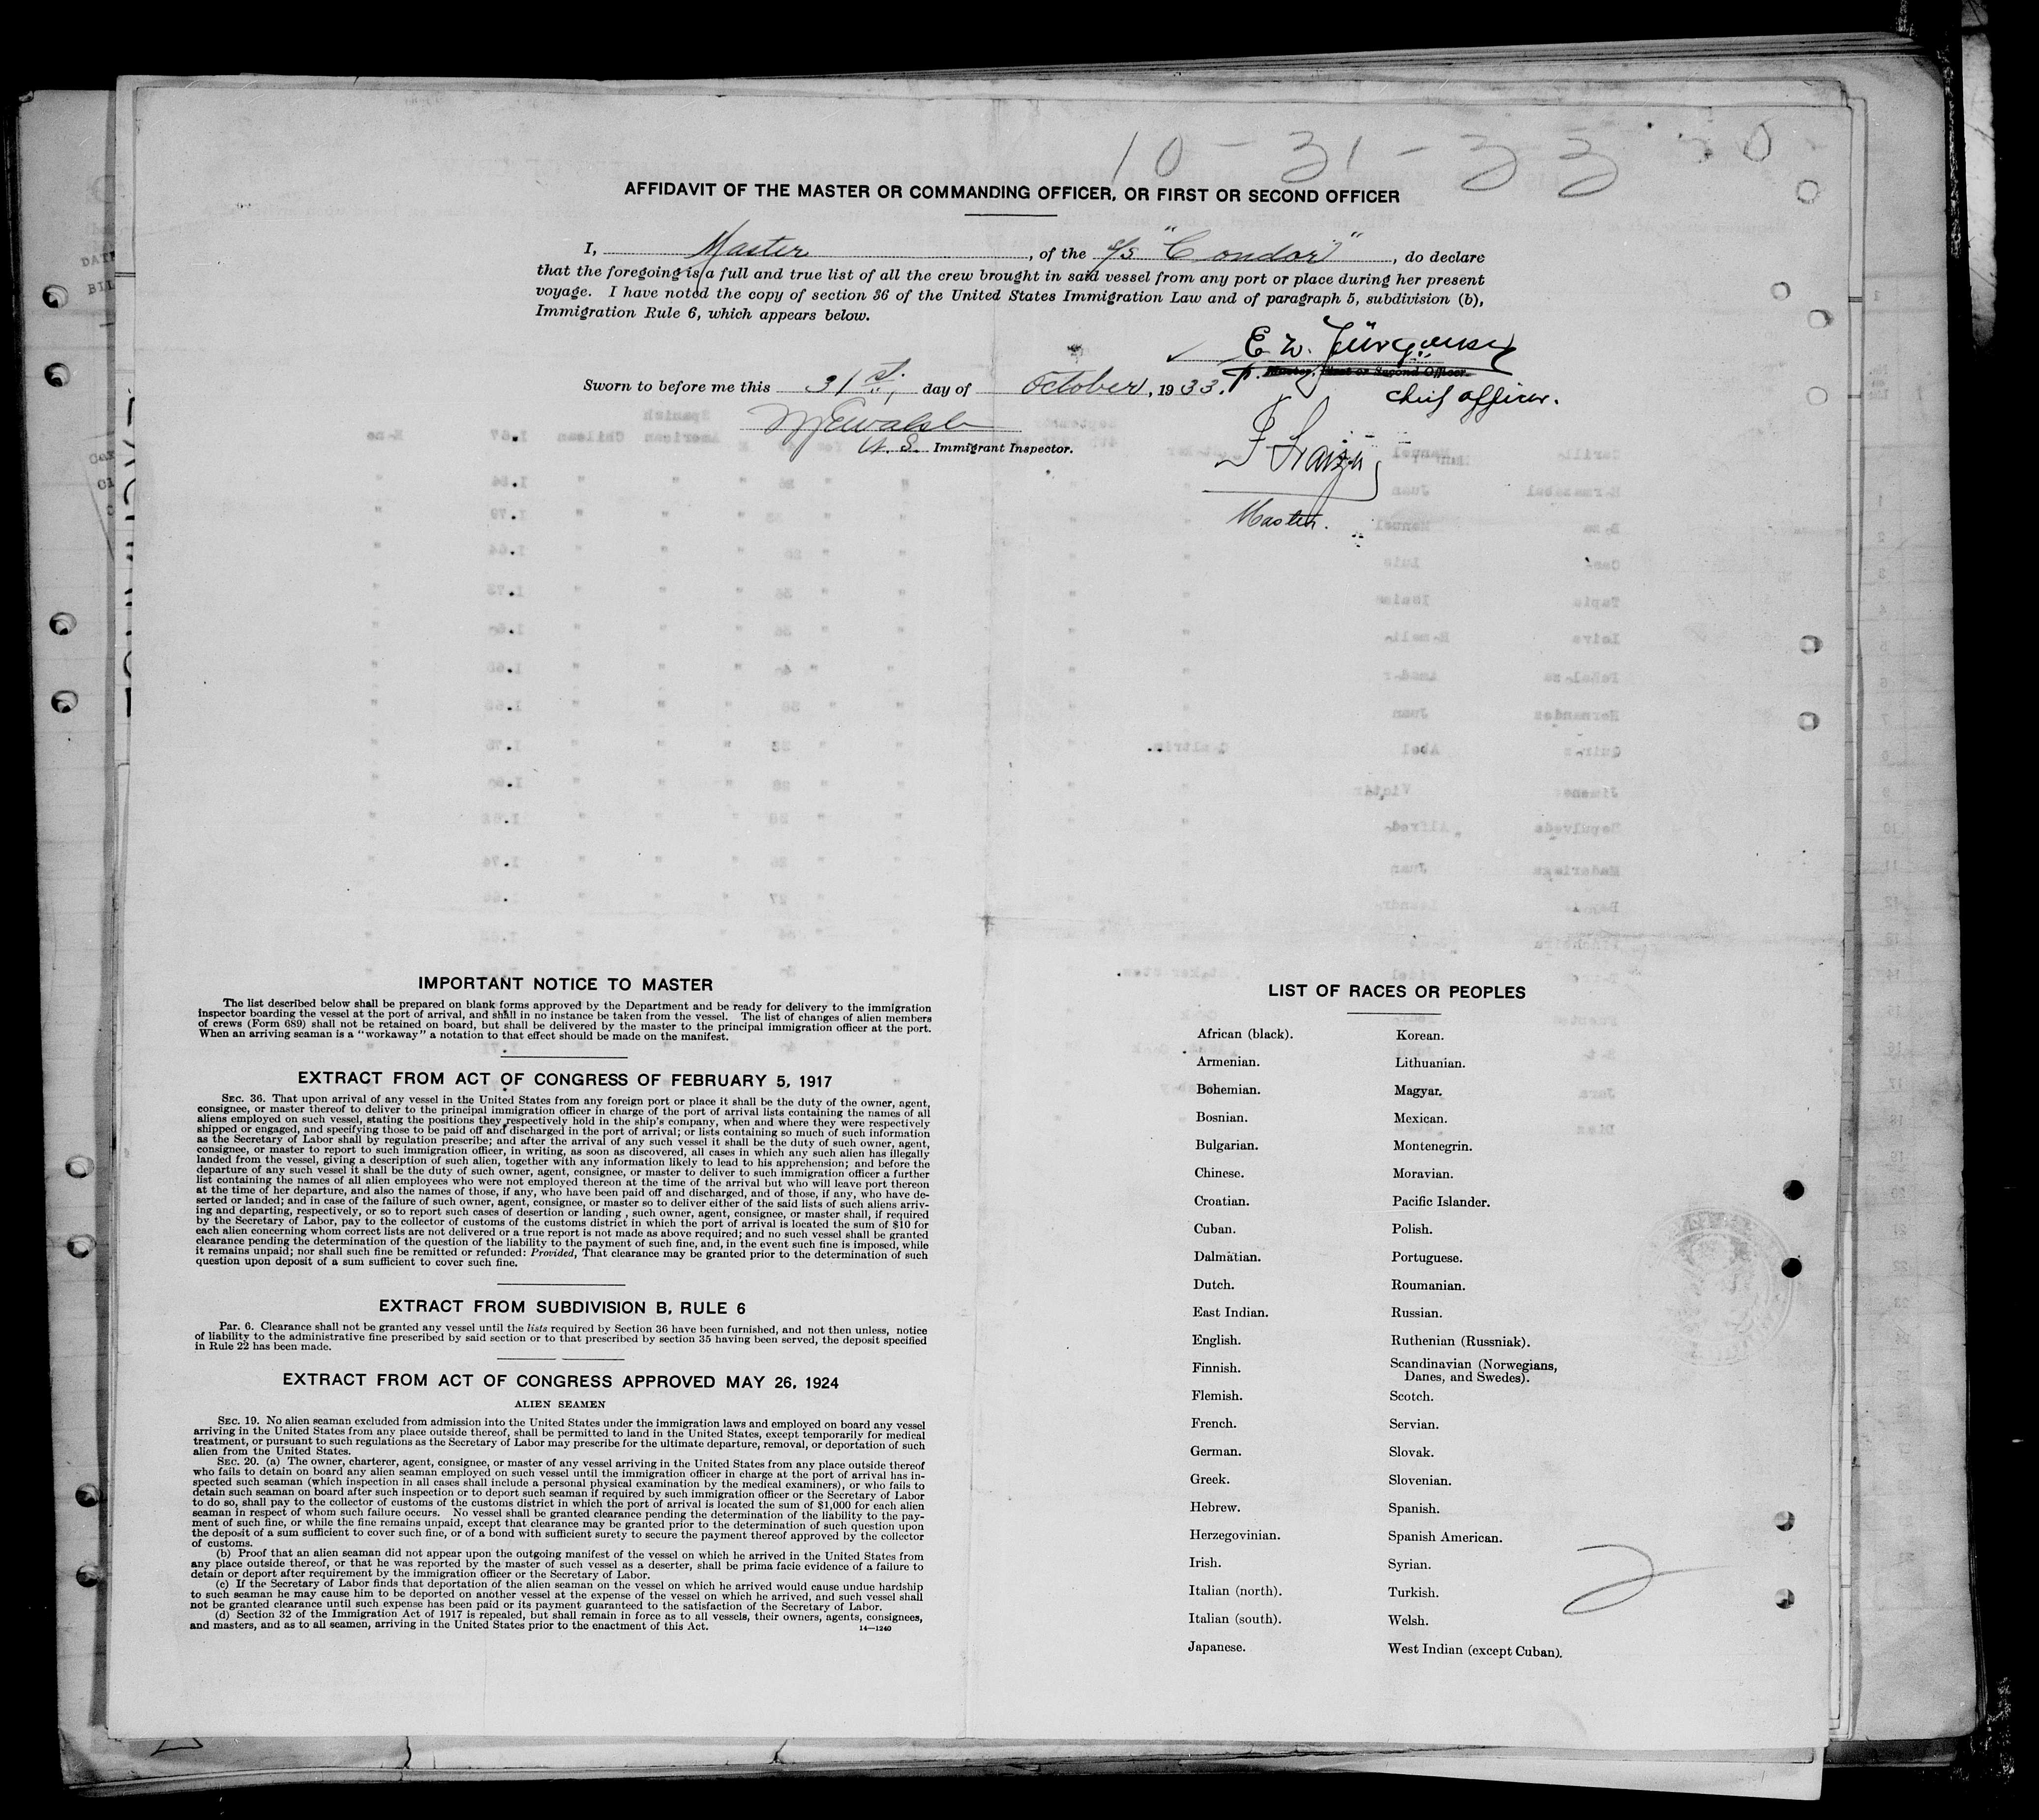 10-31-33
AFFIDAVIT OF THE MASTER OR COMMANDING OFFICER, OR FIRST OR SECOND OFFICER
I, Master, of the s/s "Condor", do declare
that the foregoing is a full and true list of all the crew brought in said vessel from any port or place during her present
voyage. I have noted the copy of section 36 of the United States Immigration Law and of paragraph 5, subdivision (b),
Immigration Rule 6, which appears below.
E. W.
Master, First or Second Officer.
Sworn to before me this 31st, day of October, 1933.
chief officer.
U.S. Immigrant Inspector.
Master.
IMPORTANT NOTICE TO MASTER
The list described below shall be prepared on blank forms approved by the Department and be ready for delivery to the immigration
inspector boarding the vessel at the port of arrival, and shall in no instance be taken from the vessel. The list of changes of alien members
of crews (Form 689) shall not be retained on board, but shall be delivered by the master to the principal immigration officer at the port.
When an arriving seaman is a "workaway" a notation to that effect should be made on the manifest.
EXTRACT FROM ACT OF CONGRESS OF FEBRUARY 5, 1917
SEC. 36. That upon arrival of any vessel in the United States from any foreign port or place it shall be the duty of the owner, agent,
consignee, or master thereof to deliver to the principal immigration officer in charge of the port of arrival lists containing the names of all
aliens employed on such vessel, stating the positions they respectively hold in the ship's company, when and where they were respectively
shipped or engaged, and specifying those to be paid off and discharged in the port of arrival; or lists containing so much of such information
as the Secretary of Labor shall by regulation prescribe; and after the arrival of any such vessel it shall be the duty of such owner, agent,
consignee, or master to report to such immigration officer, in writing, as soon as discovered, all cases in which any such alien has illegally
landed from the vessel, giving a description of such alien, together with any information likely to lead to his apprehension; and before the
departure of any such vessel it shall be the duty of such owner, agent, consignee, or master to deliver to such immigration officer a further
list containing the names of all alien employees who were not employed thereon at the time of the arrival but who will leave port thereon
at the time of her departure, and also the names of those, if any, who have been paid off and discharged, and of those, if any, who have de-
serted or landed; and in case of the failure of such owner, agent, consignee, or master so to deliver either of the said lists of such aliens arriv-
ing and departing, respectively, or so to report such cases of desertion or landing , such owner, agent, consignee, or master, shall, if required
by the Secretary of Labor, pay to the collector of customs of the customs district in which the port of arrival is located the sum of $10 for
each alien concerning whom correct lists are not delivered or a true report is not made as above required; and no such vessel shall be granted
clearance pending the determination of the question of the liability to the payment of such fine, and, in the event such fine is imposed, while
it remains unpaid; nor shall such fine be remitted or refunded: Provided, That clearance may be granted prior to the determination of such
question upon deposit of a sum sufficient to cover such fine.
EXTRACT FROM SUBDIVISION B, RULE 6
Par. 6. Clearance shall not be granted any vessel until the lists required by Section 36 have been furnished, and not then unless, notice
of liability to the administrative fine prescribed by said section or to that prescribed by section 35 having been served, the deposit specified
in Rule 22 has been made.
EXTRACT FROM ACT OF CONGRESS APPROVED MAY 26, 1924
ALIEN SEAMEN
SEC. 19. No alien seaman excluded from admission into the United States under the immigration laws and employed on board any vessel
arriving in the United States from any place outside thereof, shall be permitted to land in the United States, except temporarily for medical
treatment, or pursuant to such regulations as the Secretary of Labor may prescribe for the ultimate departure, removal, or deportation of such
alien from the United States.
SEC. 20. (a) The owner, charterer, agent, consignee, or master of any vessel arriving in the United States from any place outside thereof
who fails to detain on board any alien seaman employed on such vessel until the immigration officer in charge at the port of arrival has in-
spected such seaman (which inspection in all cases shall include a personal physical examination by the medical examiners), or who fails to
detain such seaman on board after such inspection or to deport such seaman if required by such immigration officer or the Secretary of Labor
to do so, shall pay to the collector of customs of the customs district in which the port of arrival is located the sum of $1,000 for each alien
seaman in respect of whom such failure occurs. No vessel shall be granted clearance pending the determination of the liability to the pay-
ment of such fine, or while the fine remains unpaid, except that clearance may be granted prior to the determination of such question upon
the deposit of a sum sufficient to cover such fine, or of a bond with sufficient surety to secure the payment thereof approved by the collector
of customs.
(b) Proof that an alien seaman did not appear upon the outgoing manifest of the vessel on which he arrived in the United States from
any place outside thereof, or that he was reported by the master of such vessel as a deserter, shall be prima facie evidence of a failure to
detain or deport after requirement by the immigration officer or the Secretary of Labor.
(c) If the Secretary of Labor finds that deportation of the alien seaman on the vessel on which he arrived would cause undue hardship
to such seaman he may cause him to be deported on another vessel at the expense of the vessel on which he arrived, and such vessel shall
not be granted clearance until such expense has been paid or its payment guaranteed to the satisfaction of the Secretary of Labor.
(d) Section 32 of the Immigration Act of 1917 is repealed, but shall remain in force as to all vessels, their owners, agents, consignees,
and masters, and as to all seamen, arriving in the United States prior to the enactment of this Act.
14—1240
LIST OF RACES OR PEOPLES
African (black).
Armenian.
Bohemian.
Bosnian.
Bulgarian.
Chinese.
Croatian.
Cuban.
Dalmatian.
Dutch.
East Indian.
English.
Finnish.
Flemish.
French.
German.
Greek.
Hebrew.
Herzegovinian.
Irish.
Italian (north).
Italian (south).
Japanese.
Korean.
Lithuanian.
Magyar.
Mexican.
Montenegrin.
Moravian.
Pacific Islander.
Polish.
Portuguese.
Roumanian.
Russian.
Ruthenian (Russniak).
Scandinavian (Norwegians,
Danes, and Swedes).
Scotch.
Servian.
Slovak.
Slovenian.
Spanish.
Spanish American.
Syrian.
Turkish.
Welsh.
West Indian (except Cuban).